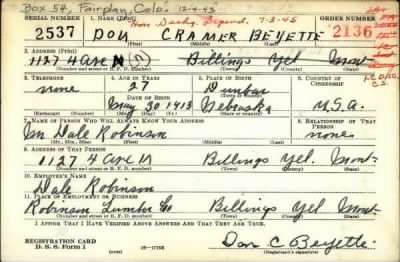 Box 54, Fairplay, Colo. 12-4-43
SERIAL NUMBER 1. NAME (Print) 7-3-45 ORDER NUMBER
2537 DON CRAMER BEYETTE 2136
(First) (Middle) (Last)
2. ADDRESS (Print)
1127 4 Ave N (7) Billings Yel Mont
(Number and street or R. F. D. number) (Town) (County) (State)
3. TELEPHONE 4. AGE IN YEARS 5. PLACE OF BIRTH 6. COUNTRY OF CITIZENSHIP
none 27 Dunbar
DATE OF BIRTH (Town or county)
May 30 1913 Nebraska U.S.A.
(Exchange) (Number) (Mo.) (Day) (Yr.) (State or country)
7. NAME OF PERSON WHO WILL ALWAYS KNOW YOUR ADDRESS 8. RELATIONSHIP OF THAT PERSON
Mr Dale Robinson none
(Mr., Mrs., Miss) (First) (Middle) (Last)
9. ADDRESS OF THAT PERSON
1127 4 Ave N Billings Yel. Mont-
(Number and street or R. F. D. number) (Town) (County) (State)
10. EMPLOYER'S NAME
Dale Robinson
11. PLACE OF EMPLOYMENT OR BUSINESS
Robinson Lumber Co Billings Yel Mont
(Number and street or R. F. D. number) (Town) (County) (State)
I AFFIRM THAT I HAVE VERIFIED ABOVE ANSWERS AND THAT THEY ARE TRUE.
REGISTRATION CARD
D. S. S. Form 1 (over) 16-17105 Don C Beyette
(Registrant's signature)